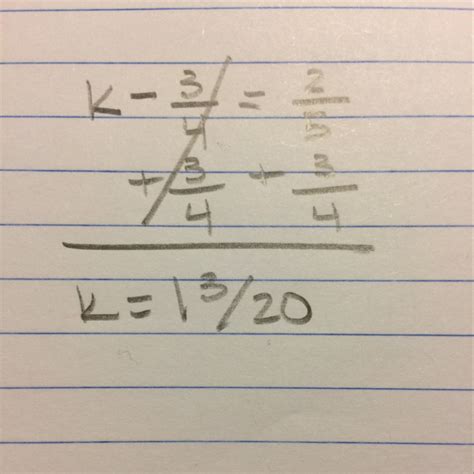 k - 3/4 = 2/5
+ 3/4 + 3/4
k = 1 3/20